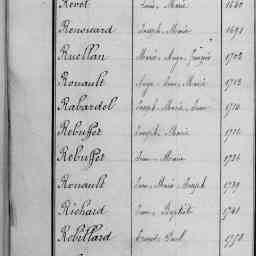 Revot Jean Marie 1680
Renouard Joseph Marie 1691
Ruellan Marie Ange François 1702
Rouault Ange Jean Marie 1712
Rabardel Joseph Marie Jean 1716
Rebuffet Joseph Marie
Rebuffet Jean Marie 1726
Rouault Jean Marie Joseph 1739
Richard Jean Baptiste 1741
Robillard François Paul